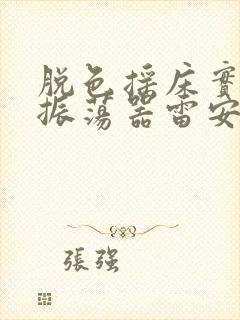 脱色摇床實
振荡器雷安
張强